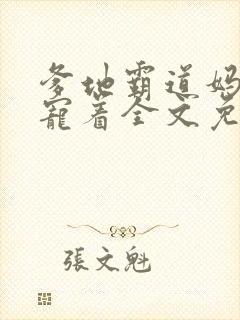 爹地霸道妈
宠着全文免
張文魁